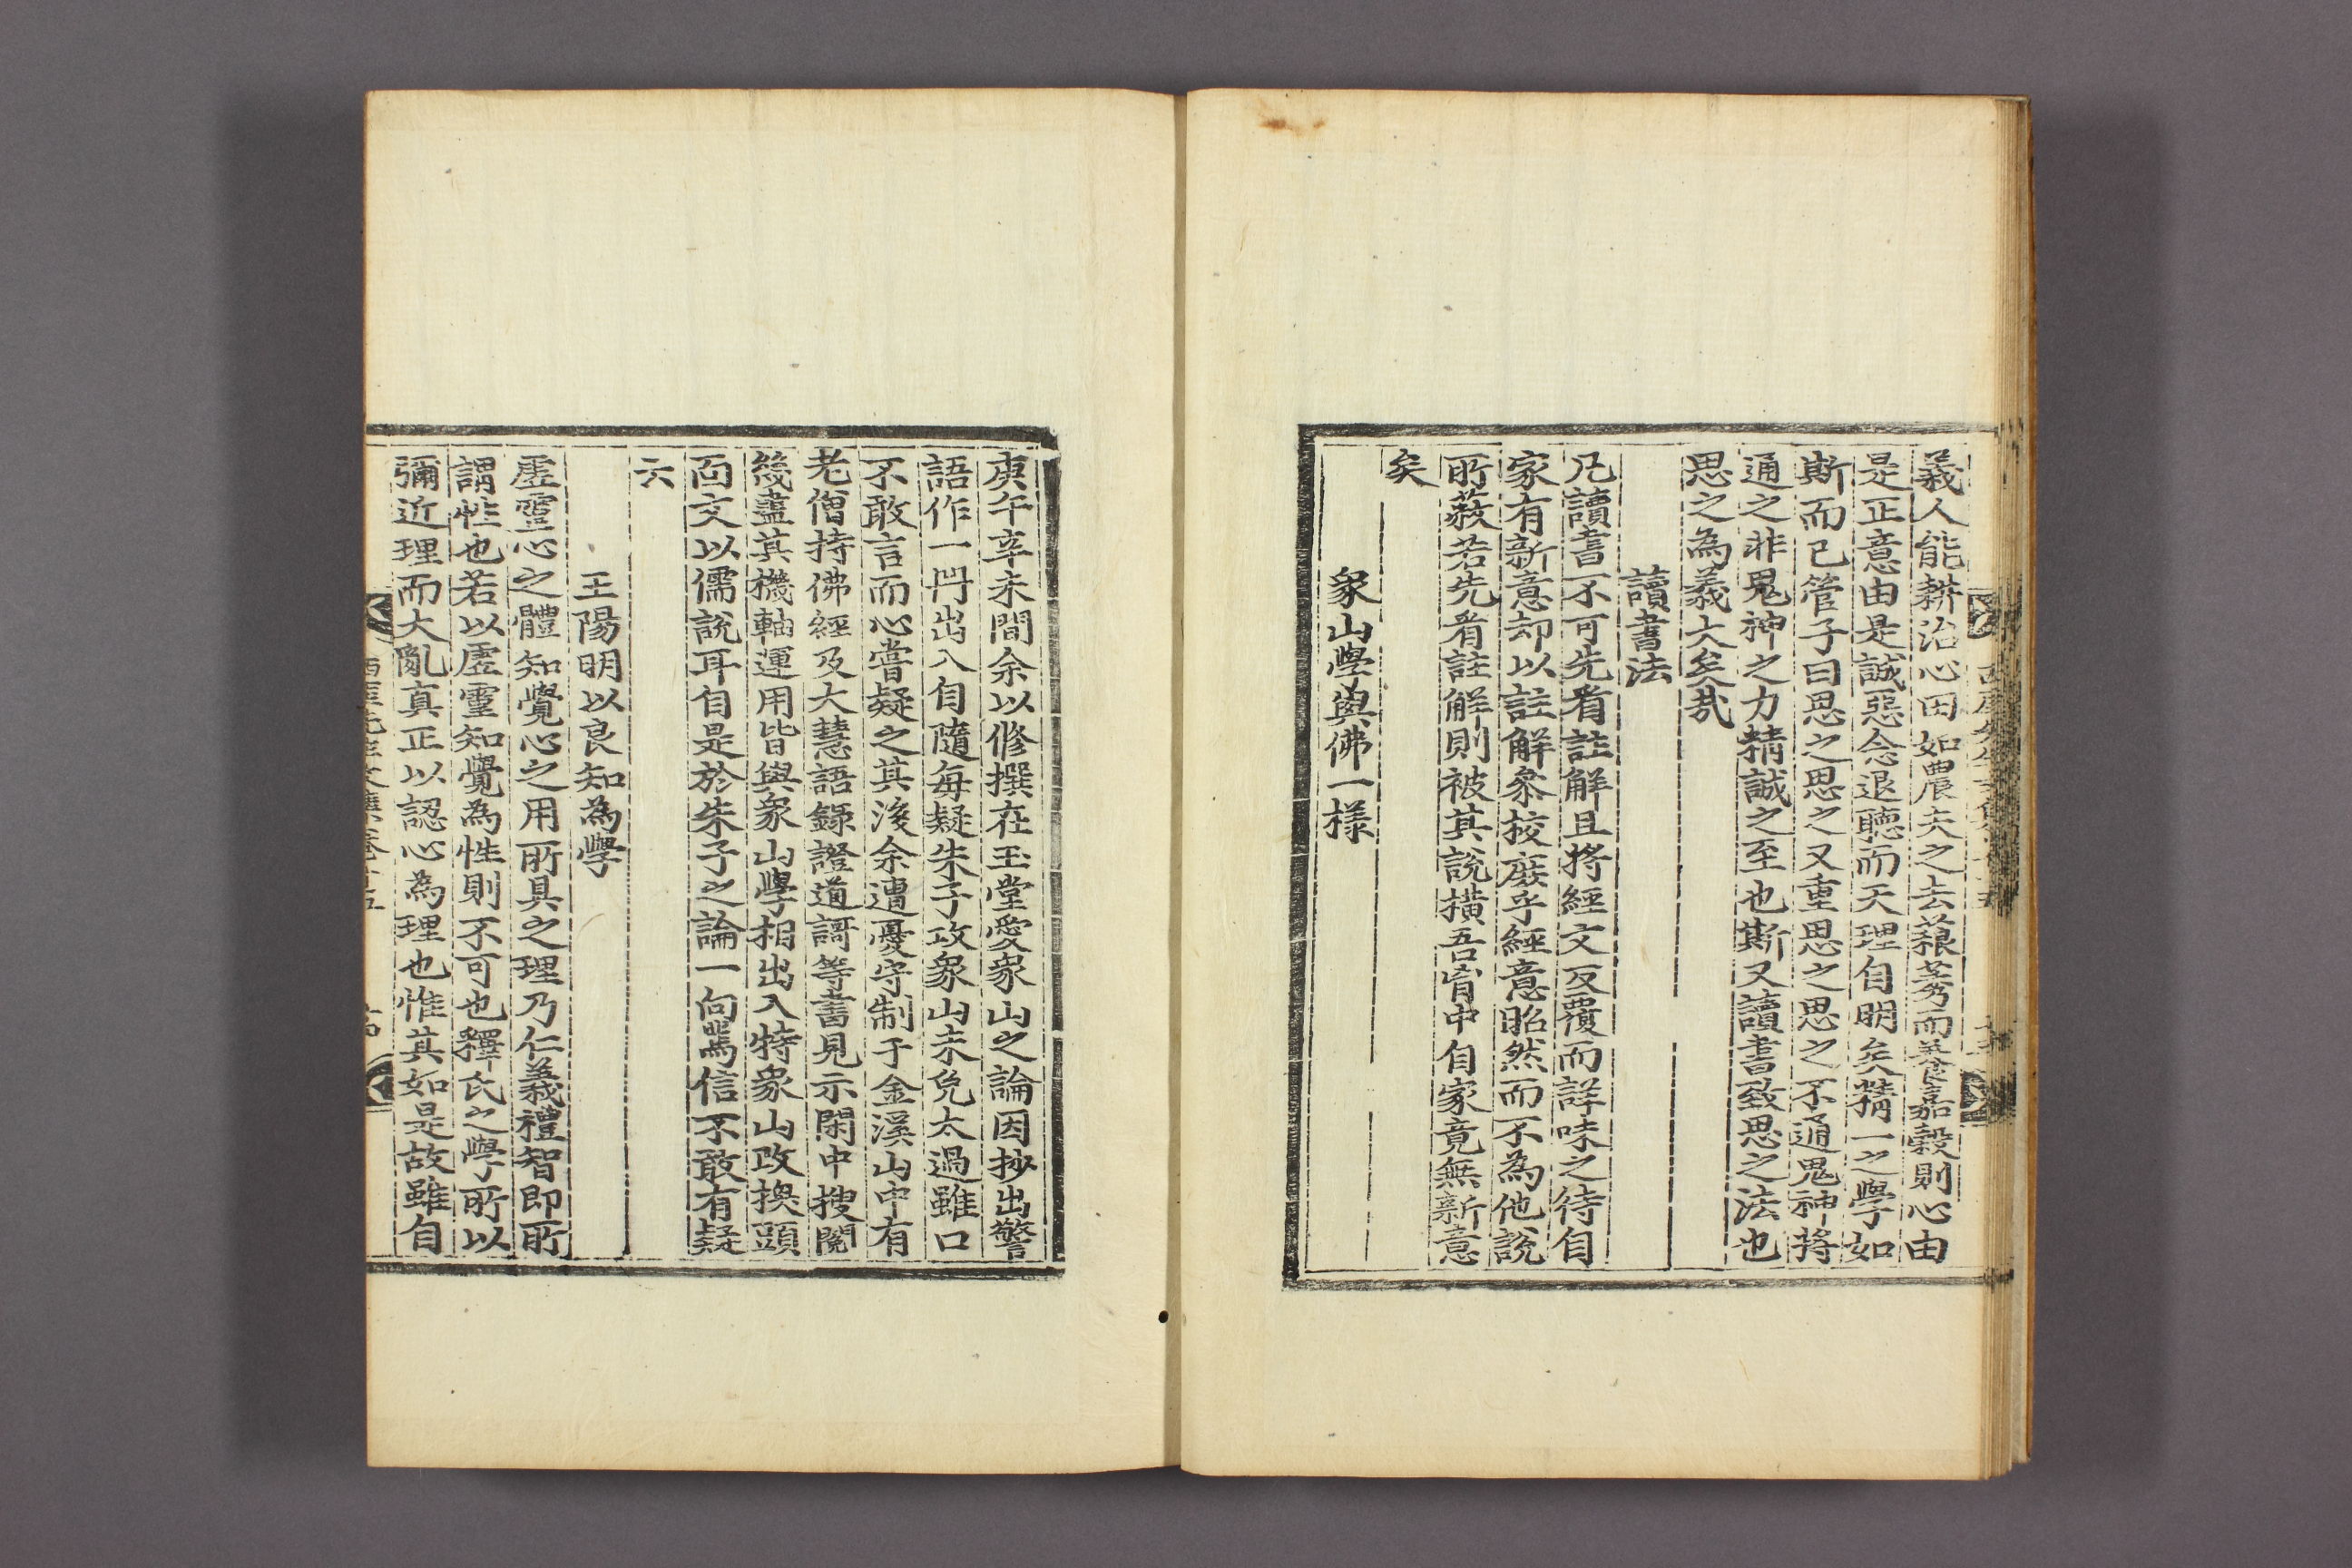 義人能耕治心田如農夫之去稂莠而養嘉穀則心由
是正意由是誠惡念退聽而天理自明矣精一之學如
斯而已管子曰思之思之又重思之思之不通鬼神將
通之非鬼神之力精誠之至也斯又讀書致思之法也
思之為義大矣哉
讀書法
凡讀書不可先看註解且將經文反覆而詳味之待自
家有新意却以註解叅挍庶乎經意昭然而不為他說
所蔽若先看註解則被其說撗吾胷中自家竟無新意
矣
象山學與佛一樣
庚午辛未間余以修撰在玉堂愛象山之論因抄出警
語作一冊出入自隨每疑朱子攻象山未免太過雖口
不敢言而心甞疑之其後余遭憂守制于金溪山中有
老僧持佛經及大慧語錄證道謌等書見示閑中搜閱
幾盡其機軸運用皆與象山學相出入特象山改換頭
面文以儒說耳自是於朱子之論一向篤信不敢有疑
云
王陽明以良知為學
虛靈心之體知覺心之用所具之理乃仁義禮智即所
謂性也若以虛靈知覺為性則不可也釋氏之學所以
彌近理而大亂真正以認心為理也惟其如是故雖自